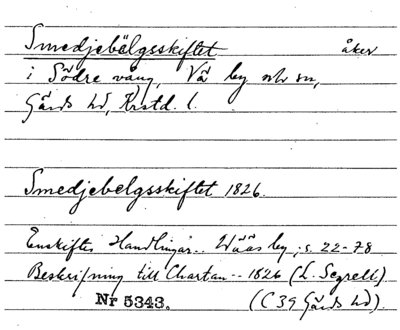 Smedjebälgsskiftet åker
i Södre vång, Vä by och sn,
Gärds hd, Krstd. l.
Smedjebelgsskiftet 1826.
Enskiftes Handlingar.. Wääs by, s. 22-78
Beskrifning till Chartan-- 1826 (L. Segrell)
Nr 5343. (C 39 Gärds hd).